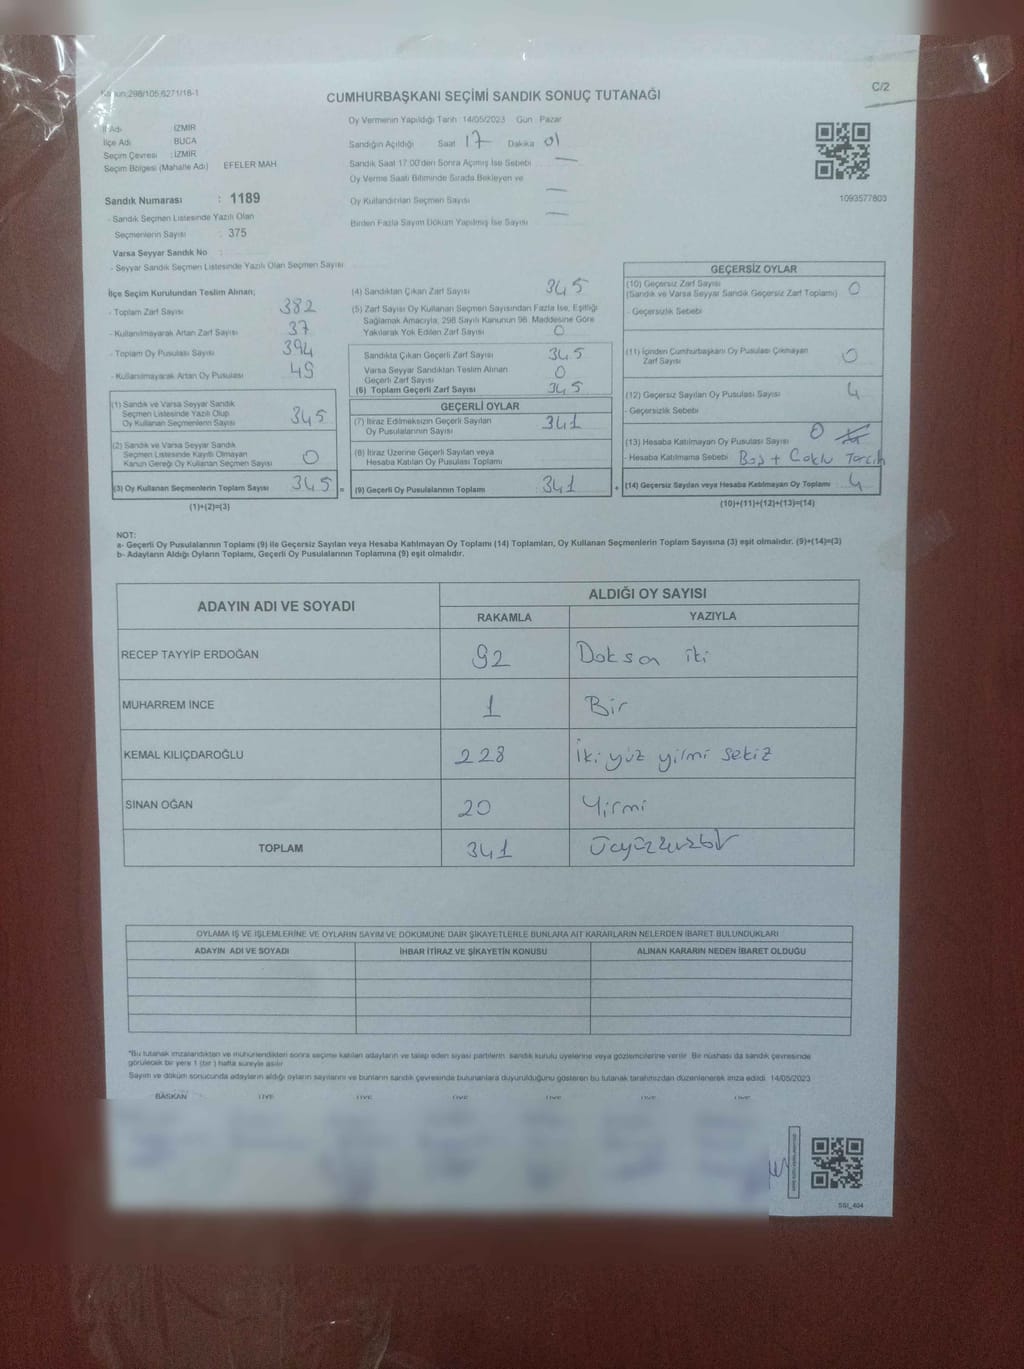 Kanun:298/105,6271/18-1
C/2
CUMHURBAŞKANI SEÇİMİ SANDIK SONUÇ TUTANAĞI
İl Adı : İZMİR
İlçe Adı BUCA
Seçim Çevresi : İZMİR
Seçim Bölgesi (Mahalle Adı) EFELER MAH
Sandık Numarası : 1189
- Sandık Seçmen Listesinde Yazılı Olan
Seçmenlerin Sayısı : 375
Varsa Seyyar Sandık No :
- Seyyar Sandık Seçmen Listesinde Yazılı Olan Seçmen Sayısı
Oy Vermenin Yapıldığı Tarih 14/05/2023 Gün Pazar
Sandığın Açıldığı Saat 17 Dakika 01
Sandık Saat 17.00'den Sonra Açılmış İse Sebebi —
Oy Verme Saati Bitiminde Sırada Bekleyen ve
Oy Kullandırılan Seçmen Sayısı —
Birden Fazla Sayım Döküm Yapılmış İse Sayısı —
1093577803
İlçe Seçim Kurulundan Teslim Alınan;
- Toplam Zarf Sayısı 382
- Kullanılmayarak Artan Zarf Sayısı 37
- Toplam Oy Pusulası Sayısı 394
- Kullanılmayarak Artan Oy Pusulası 49
(1) Sandık ve Varsa Seyyar Sandık
Seçmen Listesinde Yazılı Olup
Oy Kullanan Seçmenlerin Sayısı 345
(2) Sandık ve Varsa Seyyar Sandık
Seçmen Listesinde Kayıtlı Olmayan
Kanun Gereği Oy Kullanan Seçmen Sayısı 0
(3) Oy Kullanan Seçmenlerin Toplam Sayısı 345 =
(1)+(2)=(3)
(4) Sandıktan Çıkan Zarf Sayısı 345
(5) Zarf Sayısı Oy Kullanan Seçmen Sayısından Fazla İse, Eşitliği
Sağlamak Amacıyla, 298 Sayılı Kanunun 98. Maddesine Göre
Yakılarak Yok Edilen Zarf Sayısı 0
Sandıkta Çıkan Geçerli Zarf Sayısı 345
Varsa Seyyar Sandıktan Teslim Alınan
Geçerli Zarf Sayısı 0
(6) Toplam Geçerli Zarf Sayısı 345
GEÇERLİ OYLAR
(7) İtiraz Edilmeksizin Geçerli Sayılan
Oy Pusulalarının Sayısı 341
(8) İtiraz Üzerine Geçerli Sayılan veya
Hesaba Katılan Oy Pusulası Toplamı
(9) Geçerli Oy Pusulalarının Toplamı 341 +
GEÇERSİZ OYLAR
(10) Geçersiz Zarf Sayısı
(Sandık ve Varsa Seyyar Sandık Geçersiz Zarf Toplamı) 0
- Geçersizlik Sebebi
(11) İçinden Cumhurbaşkanı Oy Pusulası Çıkmayan
Zarf Sayısı 0
(12) Geçersiz Sayılan Oy Pusulası Sayısı 4
- Geçersizlik Sebebi
(13) Hesaba Katılmayan Oy Pusulası Sayısı 0
- Hesaba Katılmama Sebebi Boş + Çoklu Tercih
(14) Geçersiz Sayılan veya Hesaba Katılmayan Oy Toplamı 4
(10)+(11)+(12)+(13)=(14)
NOT:
a- Geçerli Oy Pusulalarının Toplamı (9) ile Geçersiz Sayılan veya Hesaba Katılmayan Oy Toplamı (14) Toplamları, Oy Kullanan Seçmenlerin Toplam Sayısına (3) eşit olmalıdır. (9)+(14)=(3)
b- Adayların Aldığı Oyların Toplamı, Geçerli Oy Pusulalarının Toplamına (9) eşit olmalıdır.
ADAYIN ADI VE SOYADI ALDIĞI OY SAYISI
RAKAMLA YAZIYLA
RECEP TAYYİP ERDOĞAN 92 Doksan iki
MUHARREM İNCE 1 Bir
KEMAL KILIÇDAROĞLU 228 İki yüz yirmi sekiz
SİNAN OĞAN 20 Yirmi
TOPLAM 341
OYLAMA İŞ VE İŞLEMLERİNE VE OYLARIN SAYIM VE DÖKÜMÜNE DAİR ŞİKAYETLERLE BUNLARA AİT KARARLARIN NELERDEN İBARET BULUNDUKLARI
ADAYIN ADI VE SOYADI İHBAR İTİRAZ VE ŞİKAYETİN KONUSU ALINAN KARARIN NEDEN İBARET OLDUĞU
*Bu tutanak imzalandıktan ve mühürlendikten sonra seçime katılan adayların ve talep eden siyasi partilerin sandık kurulu üyelerine veya gözlemcilerine verilir. Bir nüshası da sandık çevresinde
görülecek bir yere 1 (bir) hafta süreyle asılır
Sayım ve döküm sonucunda adayların aldığı oyların sayılarını ve bunların sandık çevresinde bulunanlara duyurulduğunu gösteren bu tutanak tarafımızdan düzenlenerek imza edildi. 14/05/2023
BAŞKAN ÜYE ÜYE ÜYE ÜYE ÜYE ÜYE
SSI_404